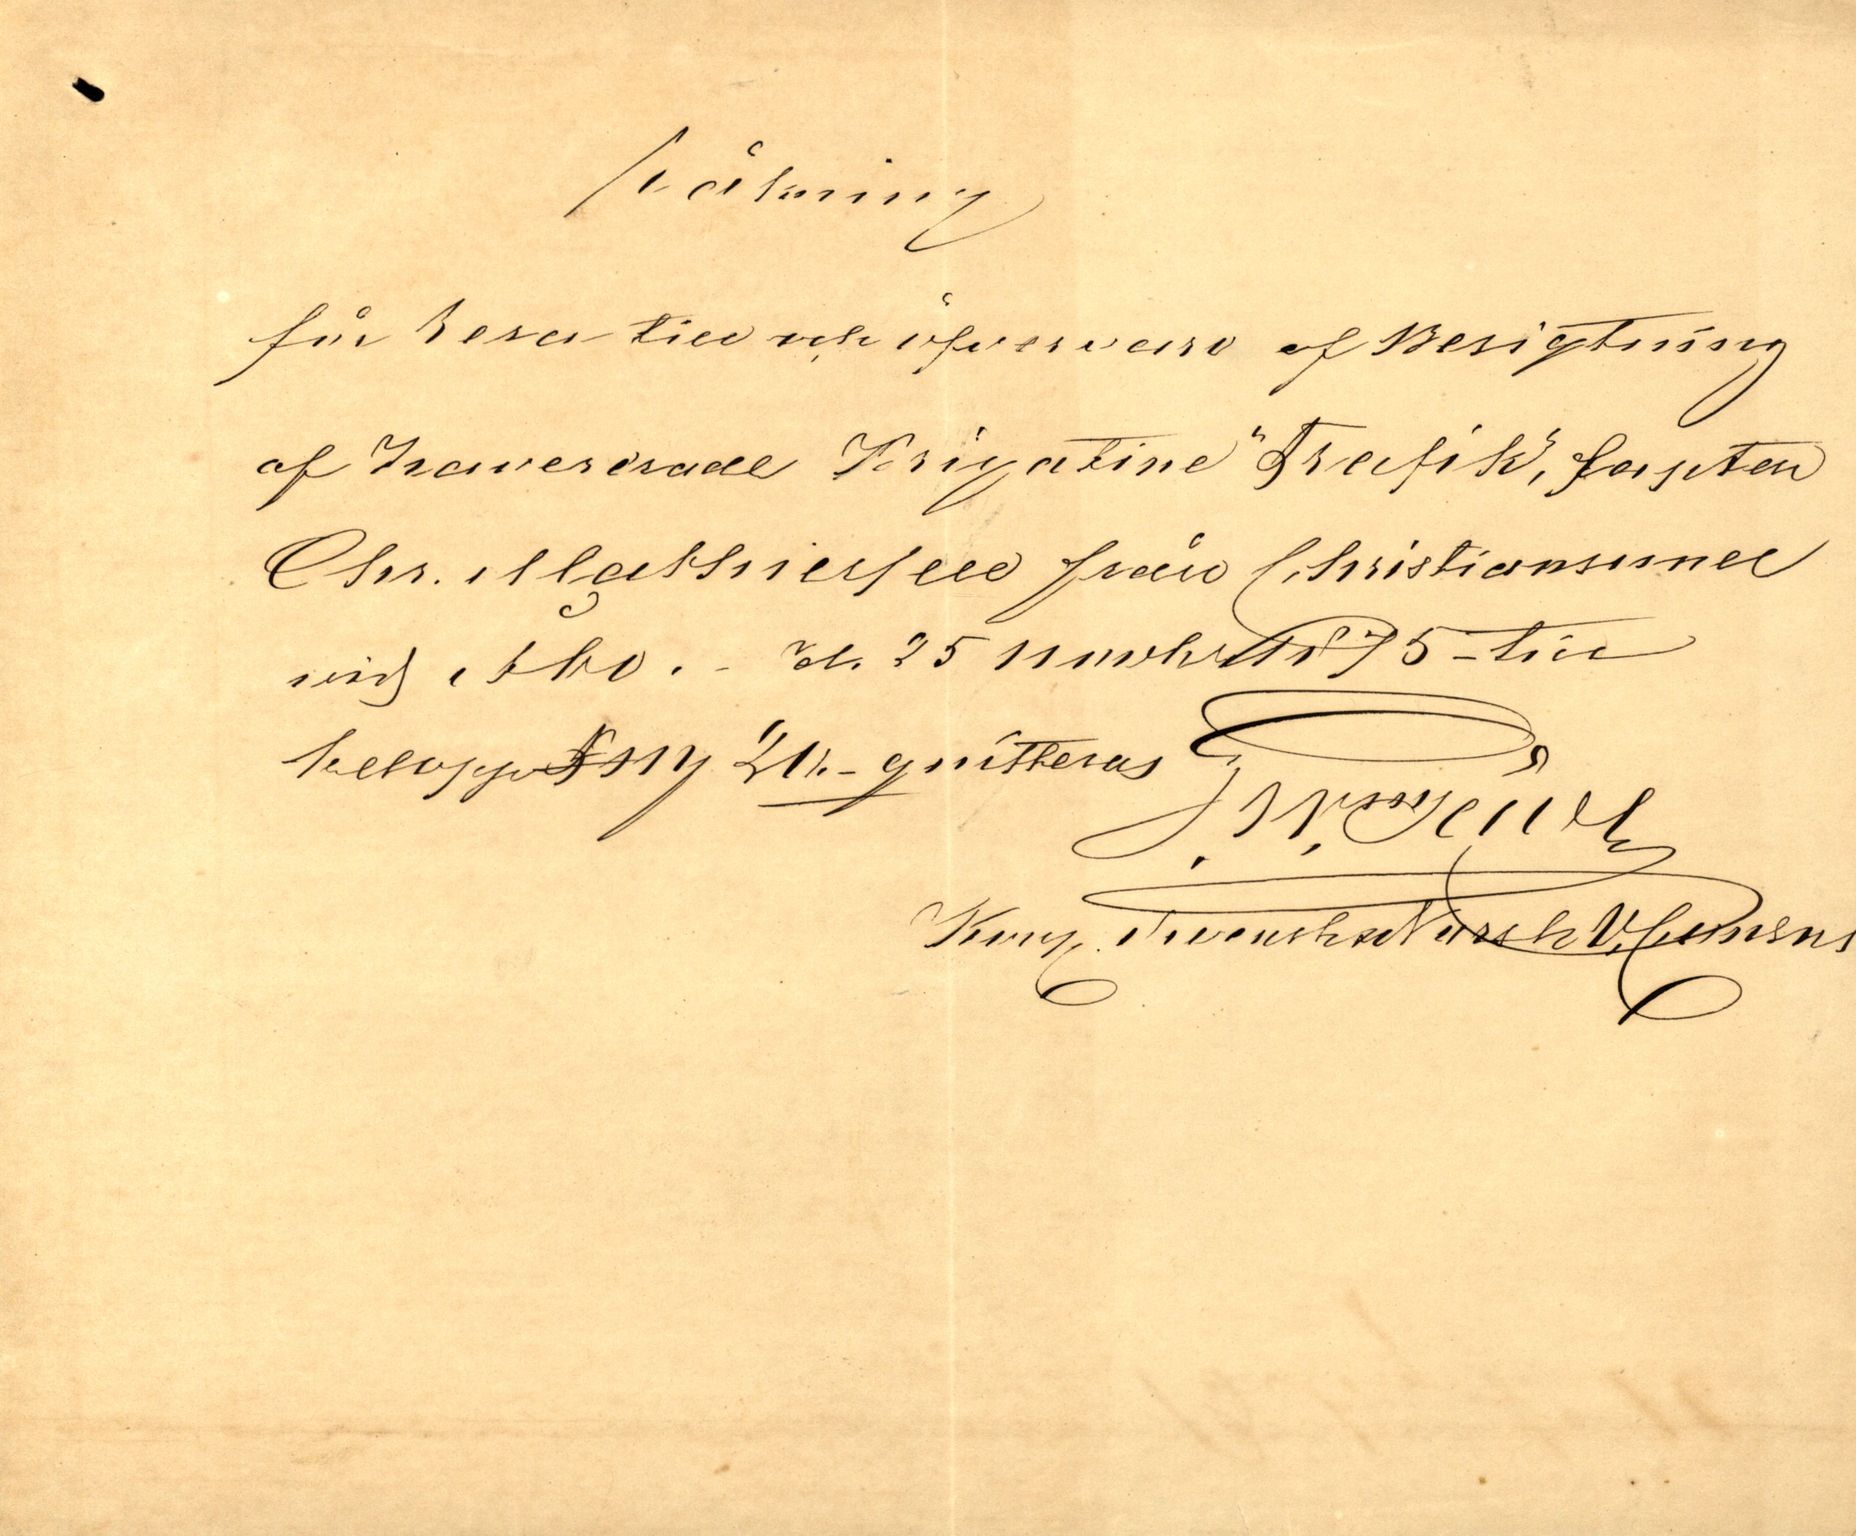 Räkning
för Resa till och öfvervaro af Besigtning
af Hawererade Brigatine "Trafik", Capten
Chr. Mathiesen från Christiansund
vid Åbo. - d. 25 novbr 1875 - till
belopp Fmy 21. - qvitteras
Kongl. Svensk o Norsk V. Consul